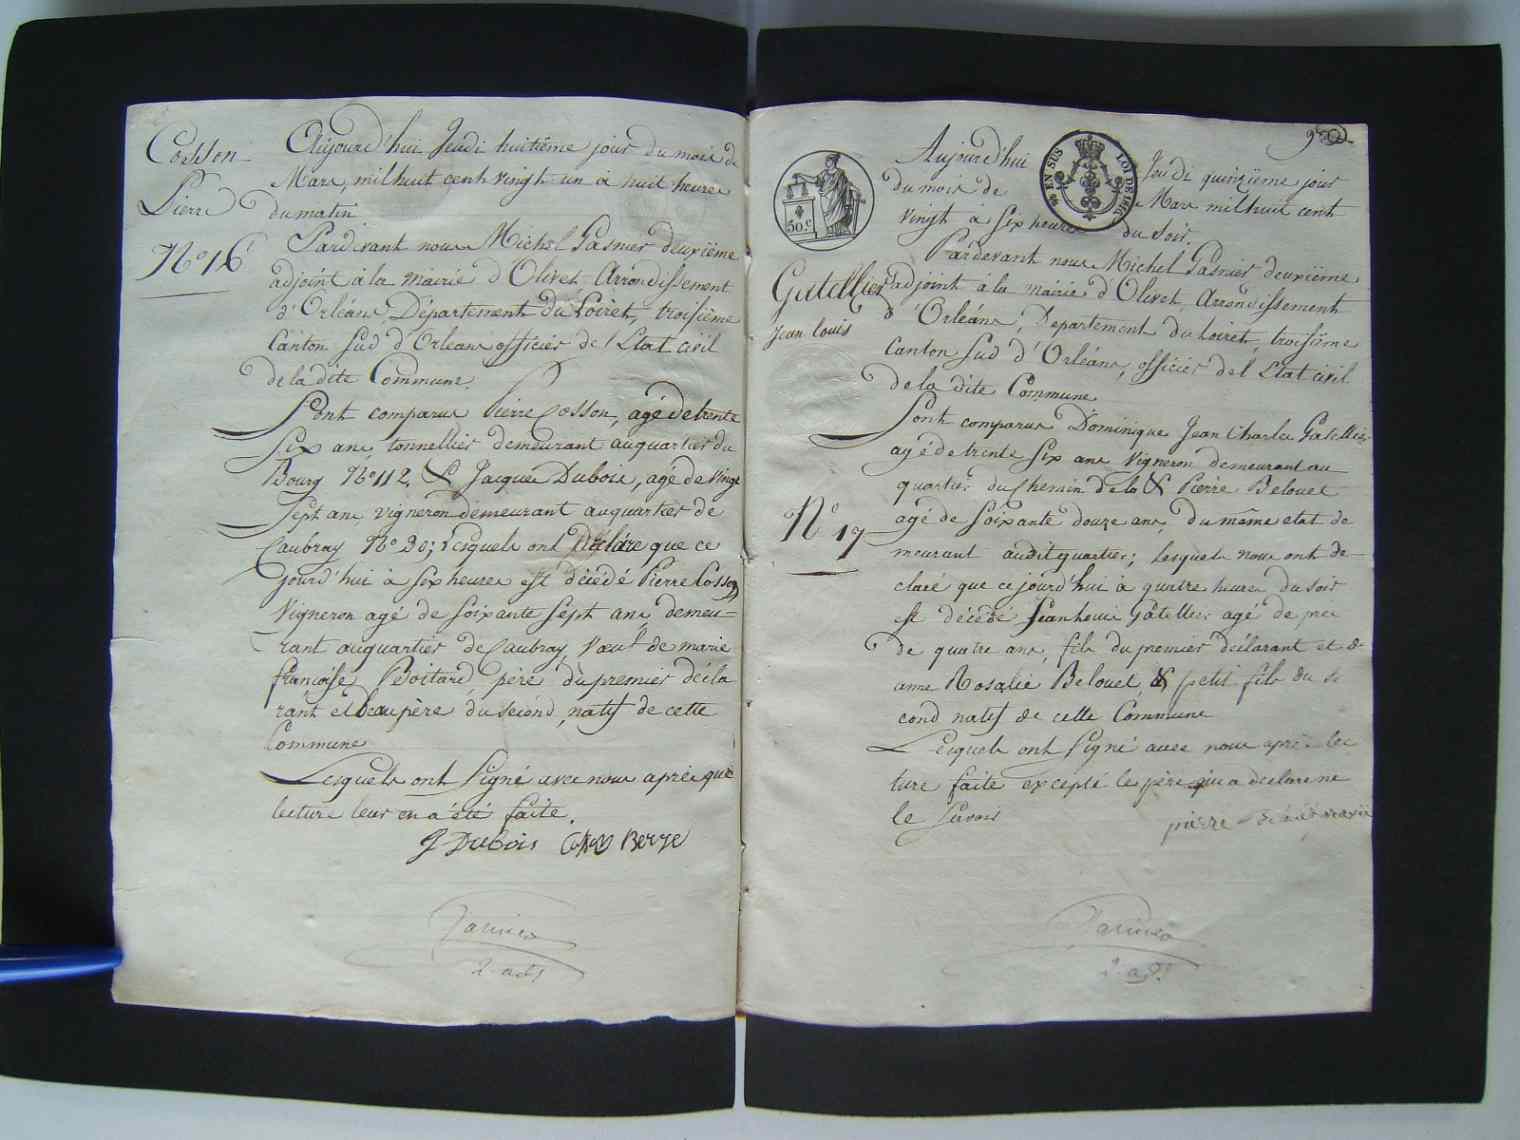 Cosson
Pierre
N° 16
Aujourd'hui Jeudi huitième jour du mois de
Mars, mil huit cent vingt-un à huit heures
du matin
Pardevant nous Michel Gasnier deuxième
adjoint à la mairie d'Olivet, Arrondissement
d'Orléans Département du Loiret, troisième
Canton Sud d'Orléans officier de l'Etat civil
de la dite Commune.
Sont comparus Pierre Cosson, agé de trente
Six ans, tonnellier demeurant au quartier du
Bourg N° 112, & Jacques Dubois, agé de vingt
Sept ans, vigneron demeurant au quartier de
Caubray N° 30; Lesquels ont Déclaré que ce
jourd'hui à Six heures est décédé Pierre Cosson
Vigneron agé de Soixante Sept ans demeu=
rant au quartier de Caubray, veuf de marie
françoise Poitard, père du premier décla
rant et beaupère du second, natif de cette
Commune
Lesquels ont Signé avec nous après que
lecture leur en a été faite.
J Dubois Cosson Berge
2. adt
LOI DE 1816
EN SUS
50.c
9
Aujourd'hui Jeudi quinzième jour
du mois de Mars mil huit cent
vingt à Six heures du Soir.
Gatellier
Jean louis
N° 17
Pardevant nous Michel Gasnier deuxième
adjoint à la mairie d'Olivet, Arrondissement
d'Orléans, Departement du Loiret, troisième
Canton Sud d'Orléans, officier de l'Etat civil
de la dite Commune
Sont comparus Dominique Jean Charles Gatellier
agé de trente Six ans Vigneron demeurant au
quartier du Chemin & Pierre Belouet
agé de Soixante douze ans, du même etat de
meurant au dit quartier; lesquels nous ont dé-
claré que ce jourd'hui à quatre heures du soir
est décédé Jean louis Gatellier agé de près
de quatre ans, fils du premier déclarant et de
anne Rosalie Belouet, & petit fils du se
cond natif de cette Commune
Lesquels ont Signé avec nous après lec
ture faite excepté le père qui a déclaré ne
le Savoir
pierre
2. ad.